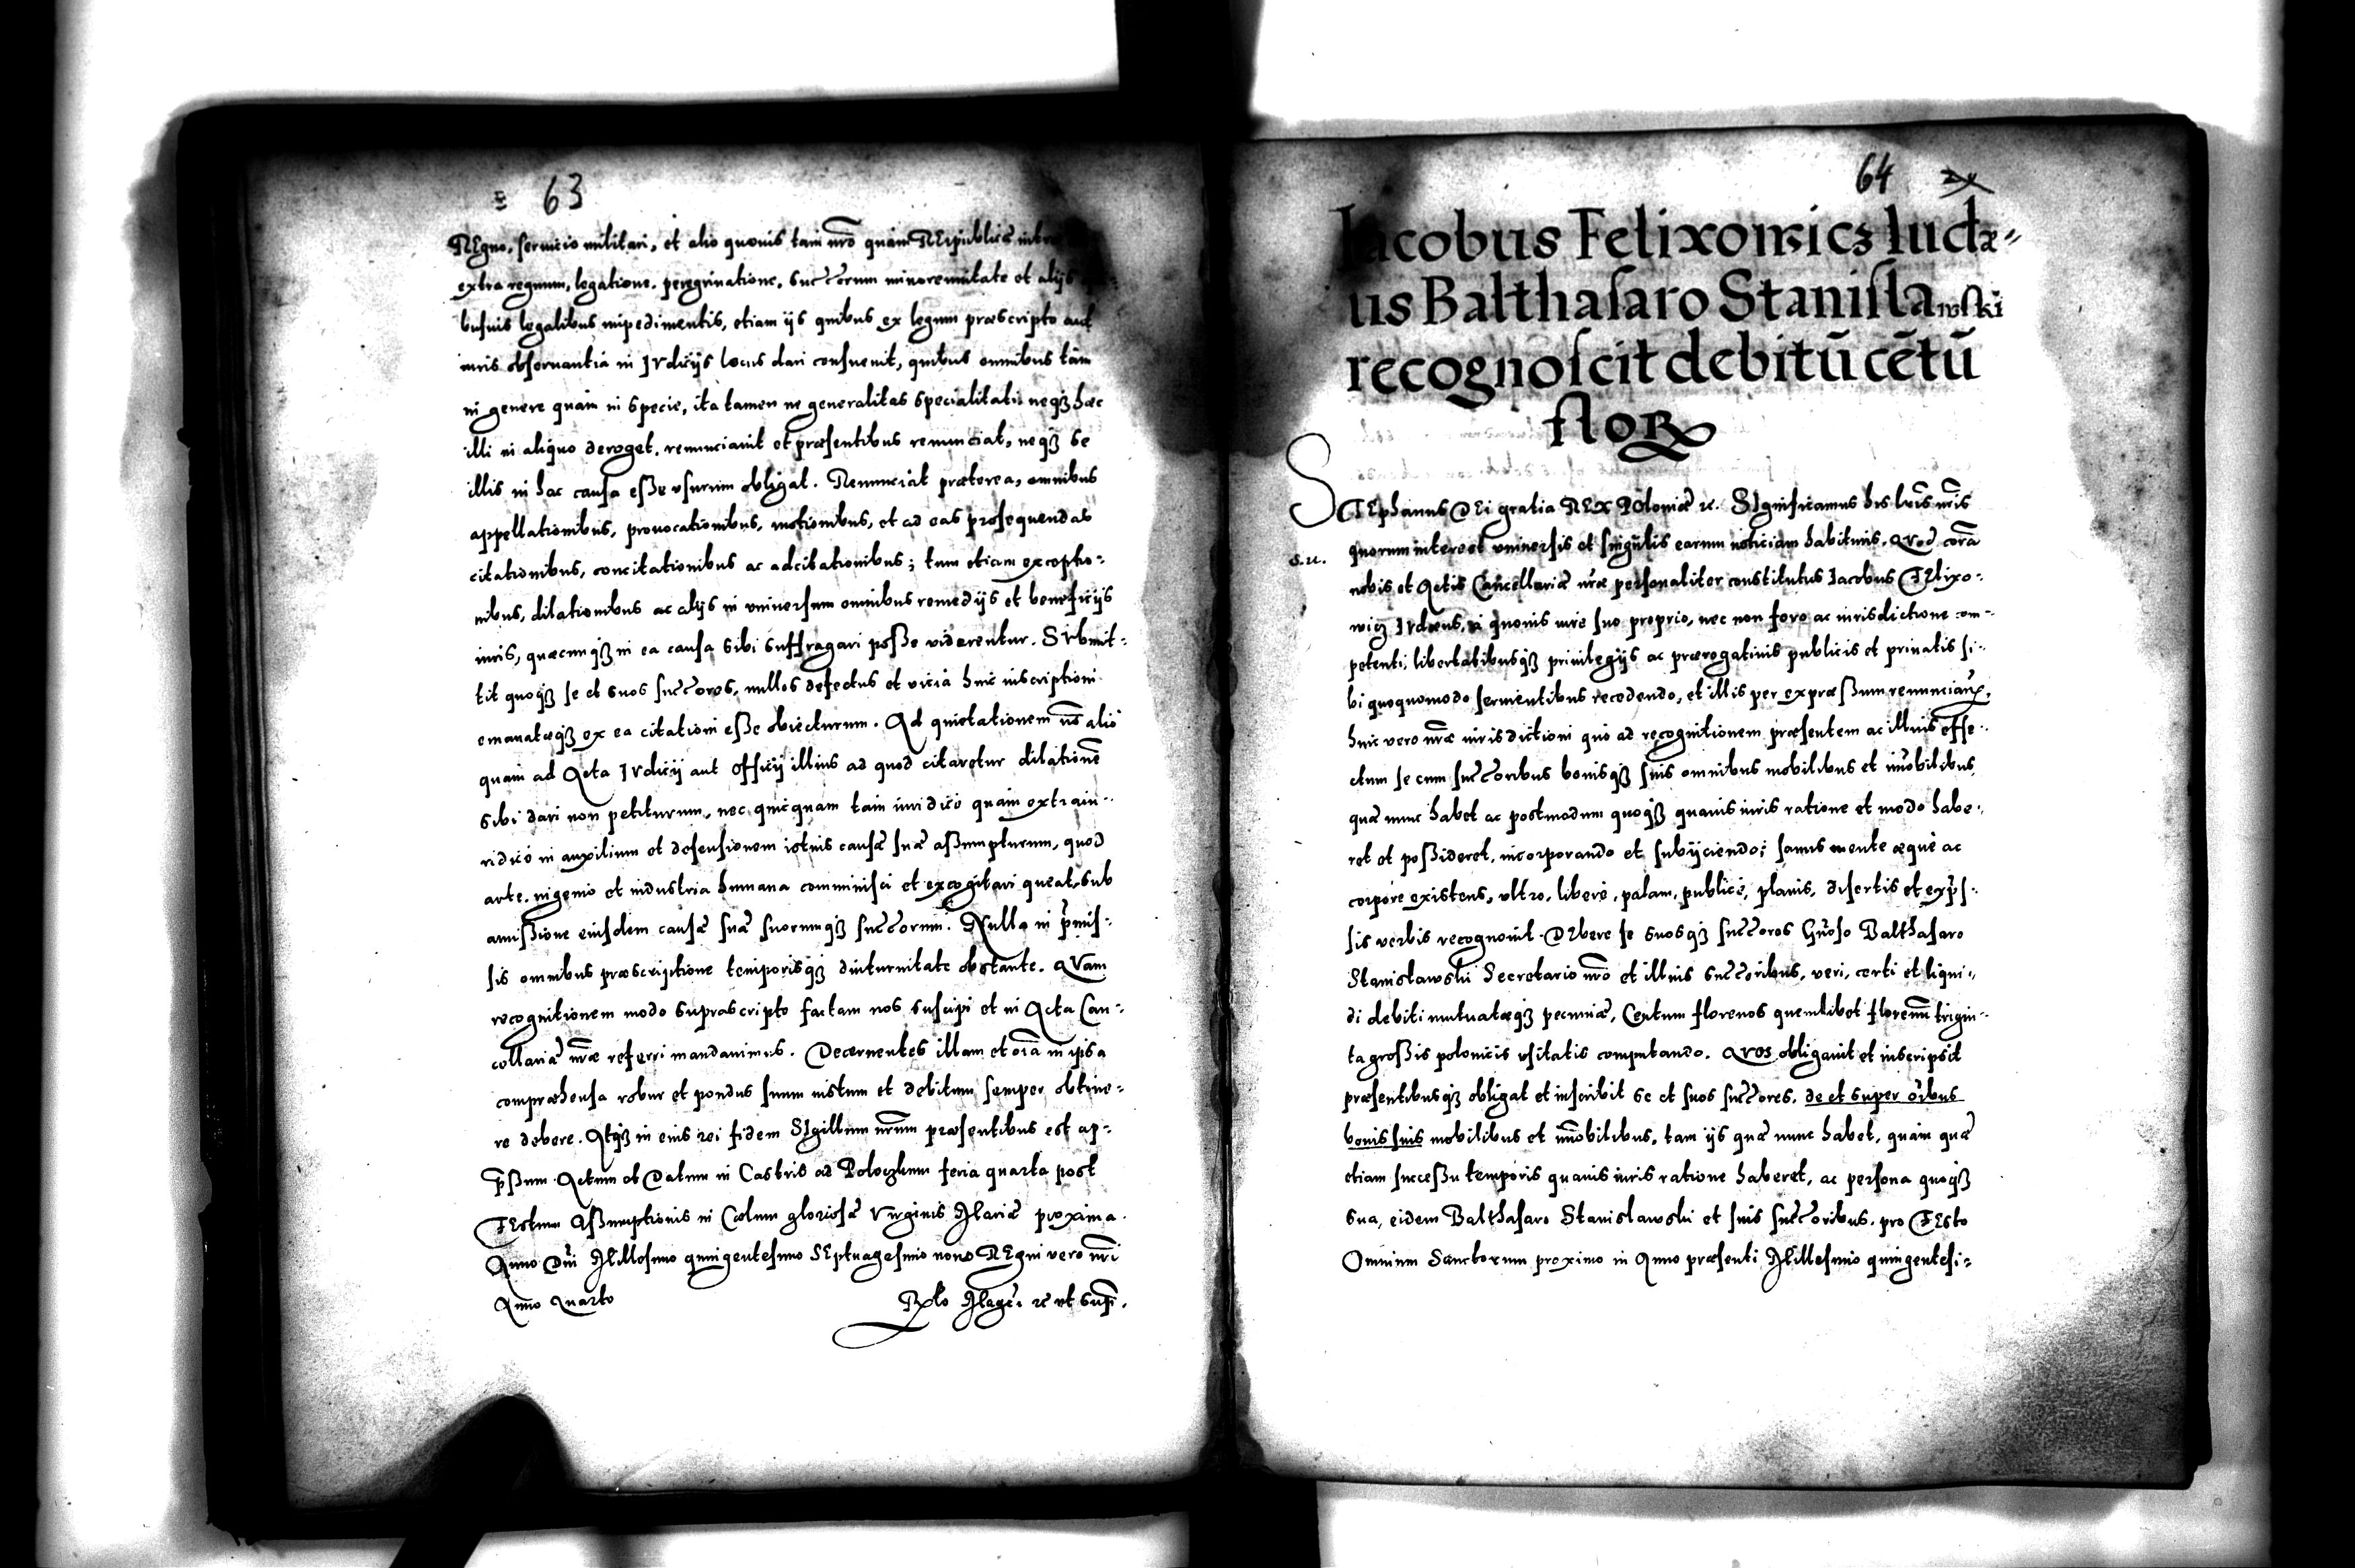 63
REgno, seruicio militari, et alio quouis tam nrō quàm REipublicę intra
extra regnum, legatione, peregrinatione, succōrum minorennitate et alijs
busuis legalibus impedimentis, etiam ijs quibus ex legum præscripto aut
iuris obseruantia in IVdicijs locus dari consueuit, quibus omnibus tàm
in genere quàm in specie, ita tamen ne generalitas specialitati neqꝫ hæc
illi in aliquo deroget, renunciauit et præsentibus renunciat, neqꝫ se
illis in hac causa eße vsurum obligat. Renunciat præterea, omnibus
appellationibus, prouocationibus, motionibus, et ad eas prosequendas
citationibus, concitationibus ac adcitationibus; tum etiam exceptio-
nibus, dilationibus ac alijs in vniuersum omnibus remedijs et beneficijs
iuris, quæcunqꝫ in ea causa sibi suffragari poße viderentur. SVbmit-
tit quoqꝫ se et suos succōres, nullos defectus et vicia huic inscriptioni
emanatæqꝫ ex ea citationi eße obiecturum. Ad quietationem nō alio
quàm ad Acta IVdicij aut officij illius ad quod citaretur dilationē
sibi dari non petiturum, nec quicquam tàm iuridicò quàm extraiu-
ridicò in auxilium et defensionem istius causæ suæ aßumpturum, quod
arte, ingenio et industria humana comminisci et excogitari queat, sub
amißione eiusdem causæ suæ suorumqꝫ succōrum. Nulla in p̄mis-
sis omnibus præscriptione temporisqꝫ diuturnitate obstante. QVam
recognitionem modo suprascripto factam nos suscipi et in Acta Can-
cellariæ nr̄æ referri mandauimus. Decernentes illam et oīa in ipsa
compræhensa robur et pondus suum iustum et debitum semper obtine-
re debere. Atqꝫ in eius rei fidem SIgillum nr̄um præsentibus est ap-
p̄ßum. Actum et Datum in Castris ad Poloczkum feria quarta post
FEstum Aßumptionis in Cœlum gloriosæ Virginis Mariæ proxima.
Anno Dn̄i Millesimo quingentesimo SEptuagesimo nono REgni vero nr̄i
Anno Quarto
ut supr̄.
64
Iacobus Felixowicz Iudæ-
us Balthasaro Stanislawski
recognoscit debitū cētū
floꝝ
STEphanus DEi gratia REX POloniæ ⁊c. SIgnificamus his lr̄is nr̄is
quorum interest vniuersis et singulis earum noticiam habituris. QVod corā
S.u.
nobis et Actis Cancellariæ nr̄æ personaliter constitutus Iacobus FElixo-
wicz IVdæus, à quouis iure suo proprio, nec non foro ac iurisdictione com-
petenti, libertatibusqꝫ priuilegijs ac prærogatiuis publicis et priuatis si-
bi quoquomodo seruientibus recedendo, et illis per expræßum renuncian̄,
huic vero nr̄æ iurisdictioni quò ad recognitionem præsentem ac illius effe-
ctum se cum succōribus bonisqꝫ suis omnibus mobilibus et im̄obilibus,
quæ nunc habet ac postmodum quoqꝫ quauis iuris ratione et modo habe-
ret et poßideret, incorporando et subijciendo; sanus mente æquè ac
corpore existens, vltro, liberè, palam, publicè, planis, disertis et exp̄s-
sis verbis recognouit. DEbere se suosqꝫ succōres Gn̄oso Balthasaro
Stanislawski Secretario nr̄o et illius succōribus, veri, certi et liqui-
di debiti mutuatæqꝫ pecuniæ, Centum florenos quemlibet florenum trigin-
ta großis polonicis vsitatis computando. QVos obligauit et inscripsit
præsentibusqꝫ obligat et inscribit se et suos succōres, de et super oībus
bonis suis mobilibus et im̄obilibus, tam ijs quæ nunc habet, quàm quæ
etiam succeßu temporis quauis iuris ratione haberet, ac persona quoqꝫ
sua, eidem Balthasaro Stanislawski et suis succōribus, pro FEsto
Omnium Sanctorum proximo in Anno præsenti Millesimo quingentesi-